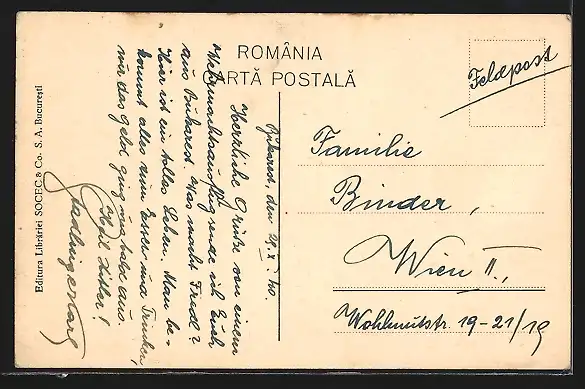 ROMÂNIA
CARTĂ POSTALĂ
Feldpost
Familie
Binder,
Wien II.,
Wohlmutstr. 19-21/19
Bukarest, den 29.X.40.
Herzliche Grüße von einem
Wehrmachtsausflug sende ich Euch
aus Bukarest. Was macht Friedl?
Hier ist ein tolles Leben. Man be-
kommt alles zum Essen und Trinken,
nur das Geld ging uns bald aus.
Heil Hitler!
Editura Librăriei SOCEC & Co. S. A. Bucureşti